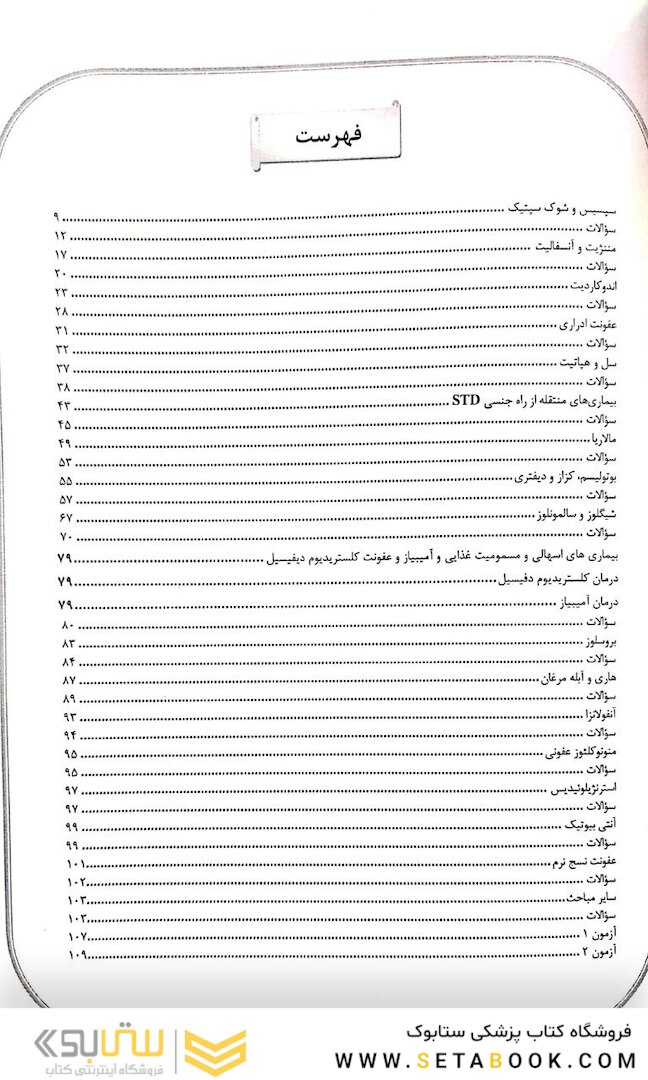 فهرست
سپسیس و شوک سپتیک ........ ۹
سؤالات ........ ۱۲
مننژیت و آنسفالیت ........ ۱۷
سؤالات ........ ۲۰
اندوکاردیت ........ ۲۳
سؤالات ........ ۲۸
عفونت ادراری ........ ۳۱
سؤالات ........ ۳۲
سل و هپاتیت ........ ۳۷
سؤالات ........ ۳۸
بیماری‌های منتقله از راه جنسی STD ........ ۴۳
سؤالات ........ ۴۵
مالاریا ........ ۴۹
سؤالات ........ ۵۳
بوتولیسم، کزاز و دیفتری ........ ۵۵
سؤالات ........ ۵۷
شیگلوز و سالمونلوز ........ ۶۷
سؤالات ........ ۷۰
بیماری های اسهالی و مسمومیت غذایی و آمیبیاز و عفونت کلستریدیوم دیفیسیل ........ ۷۹
درمان کلستریدیوم دفیسیل ........ ۷۹
درمان آمیبیاز ........ ۷۹
سؤالات ........ ۸۰
بروسلوز ........ ۸۳
سؤالات ........ ۸۴
هاری و آبله مرغان ........ ۸۷
سؤالات ........ ۸۹
آنفولانزا ........ ۹۳
سؤالات ........ ۹۴
منونوکلئوز عفونی ........ ۹۵
سؤالات ........ ۹۵
استرنژیلوئیدیس ........ ۹۷
سؤالات ........ ۹۷
آنتی بیوتیک ........ ۹۹
سؤالات ........ ۹۹
عفونت نسج نرم ........ ۱۰۱
سؤالات ........ ۱۰۲
سایر مباحث ........ ۱۰۳
سؤالات ........ ۱۰۳
آزمون ۱ ........ ۱۰۷
آزمون ۲ ........ ۱۰۹
فروشگاه کتاب پزشکی ستابوک
WWW.SETABOOK.COM
ستابوک
فروشگاه اینترنتی کتاب